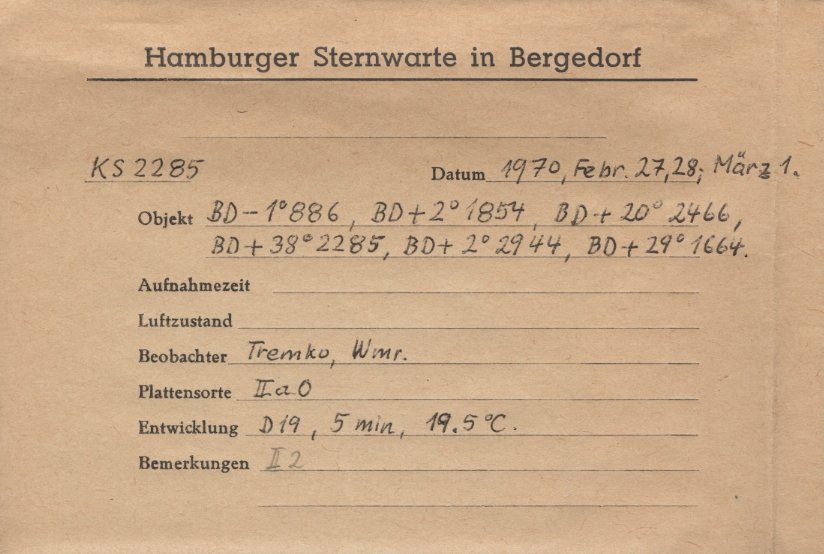 Hamburger Sternwarte in Bergedorf
KS 2285 Datum 1970, Febr. 27,28; März 1.
Objekt BD-1°886, BD+2°1854, BD+20°2466,
BD+38°2285, BD+2°2944, BD+29°1664.
Aufnahmezeit
Luftzustand
Beobachter Tremko, Wmr.
Plattensorte IIaO
Entwicklung D19, 5 min, 19.5°C.
Bemerkungen II2